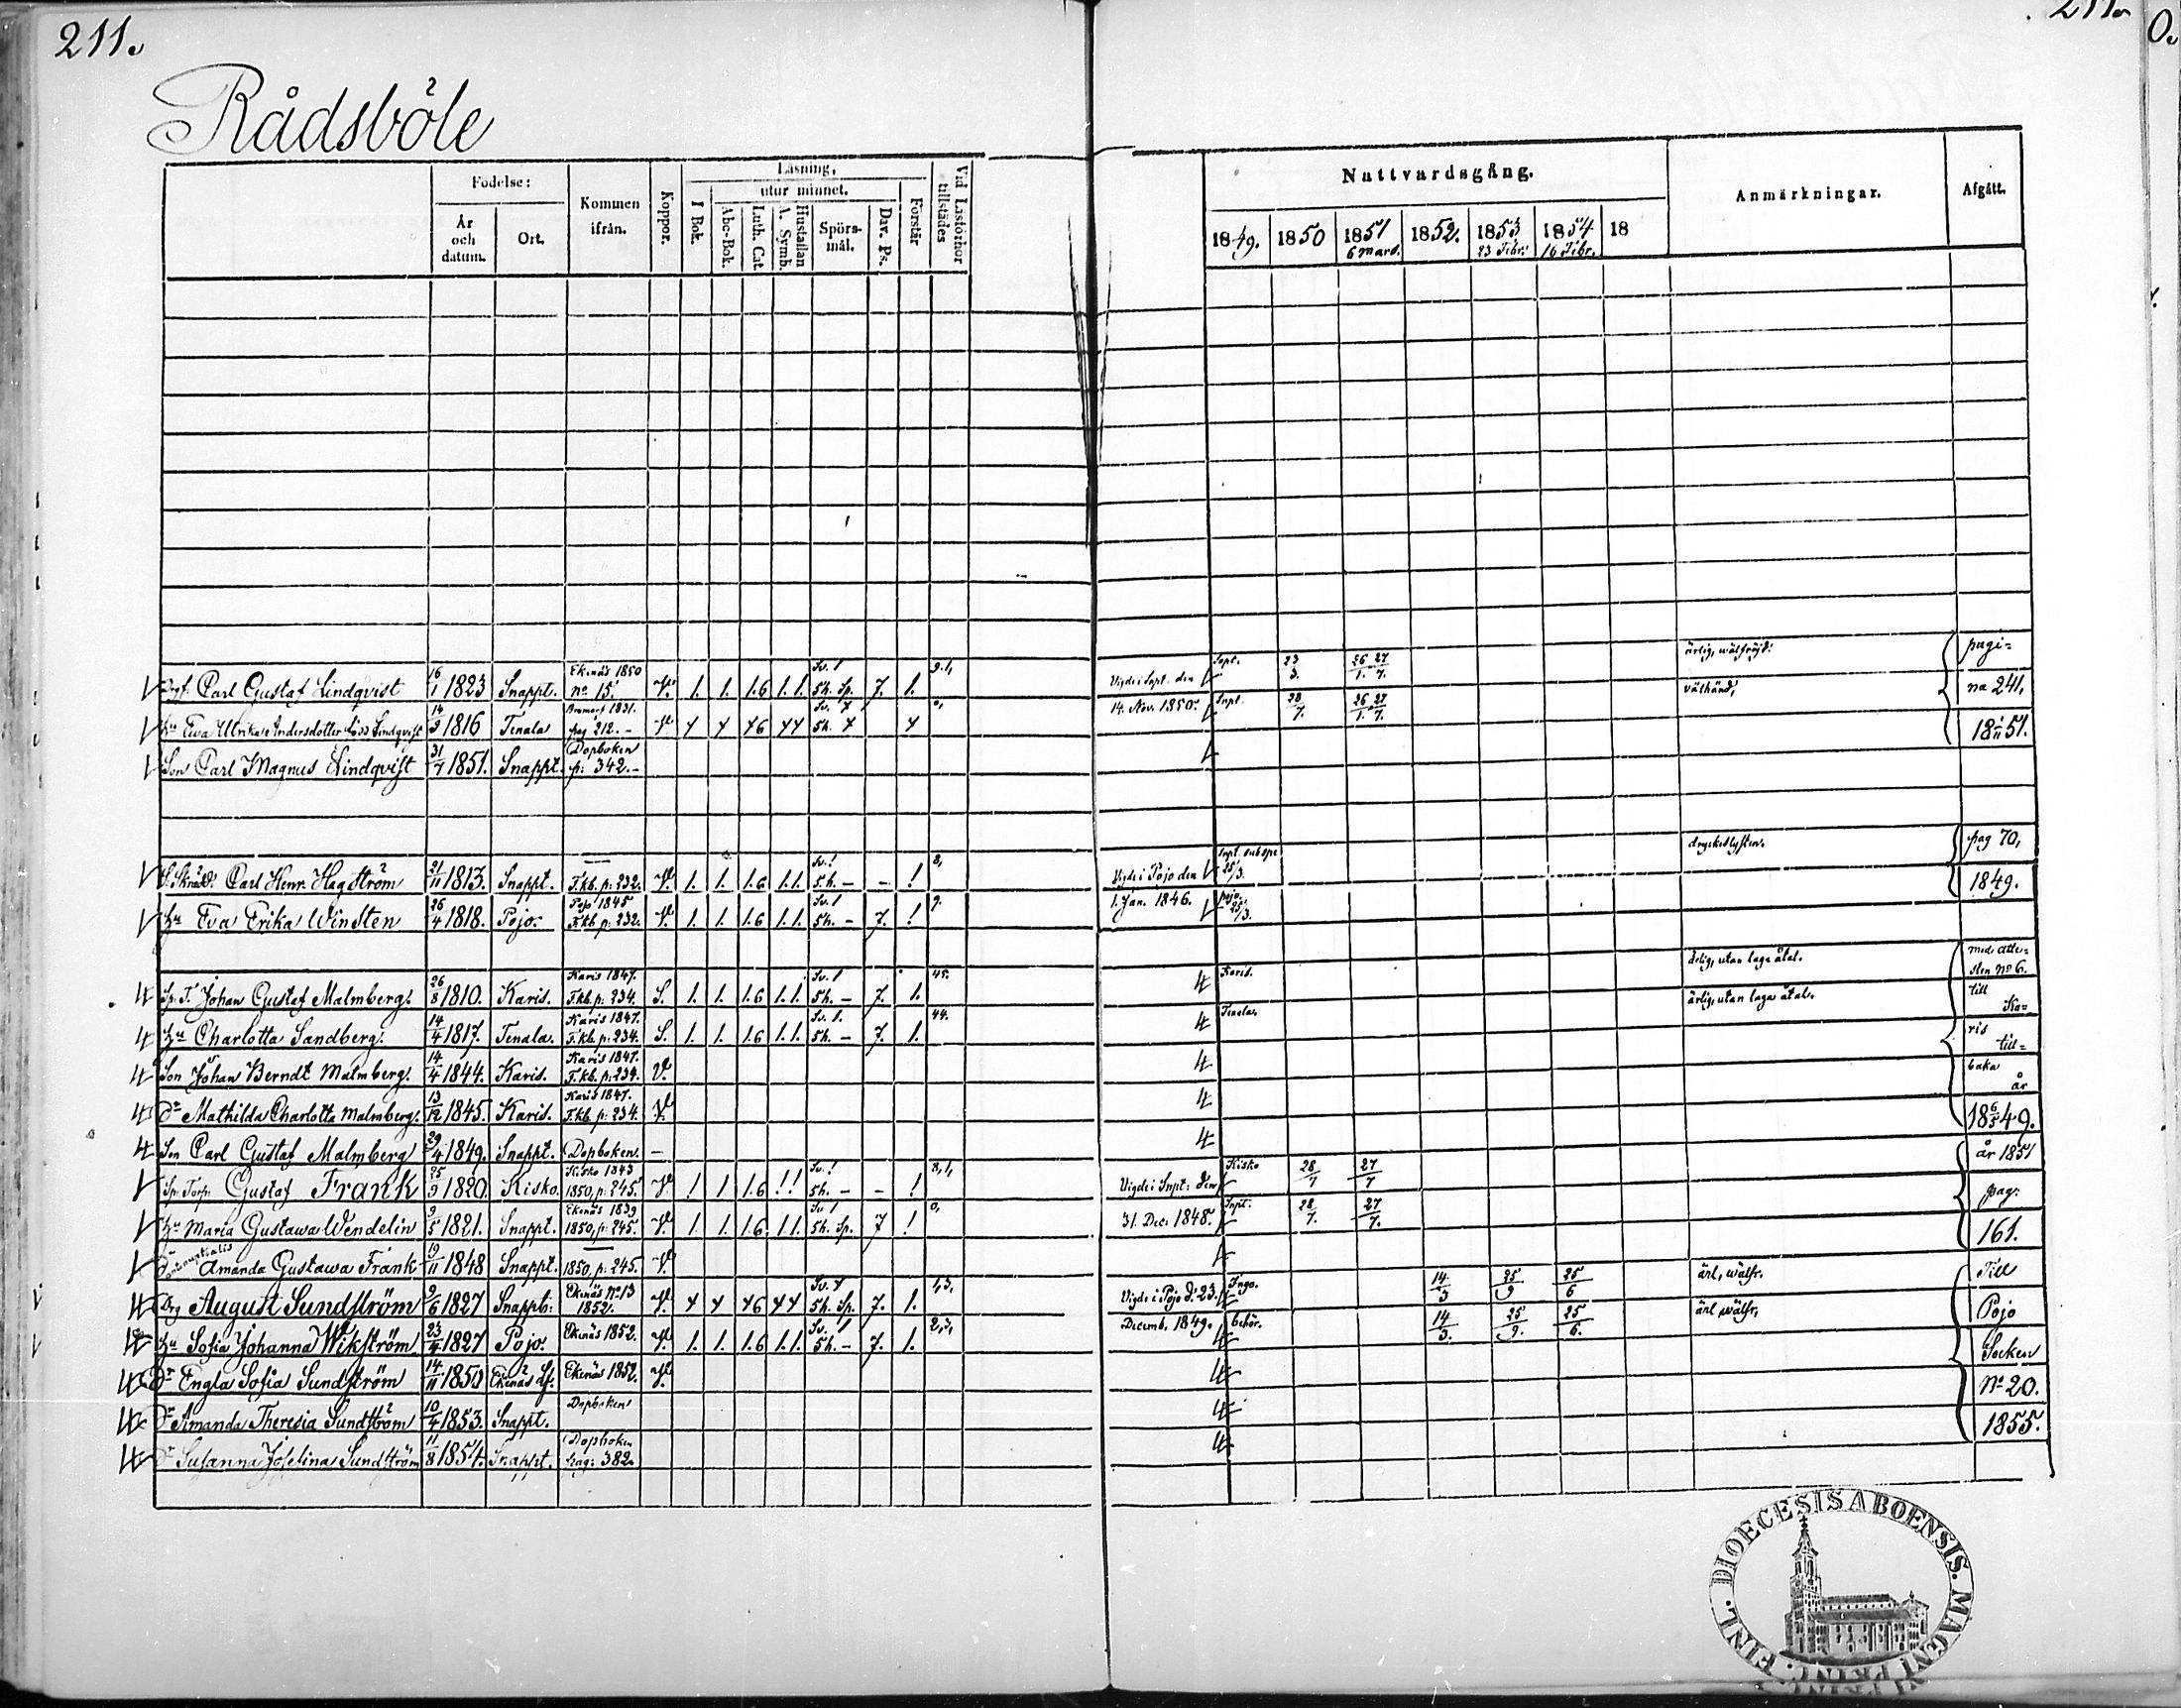 211.
211.
0.
Rådsböle
Födelse:
År och datum.
Ort.
Kommen ifrån.
Koppor.
Läsning,
utur minnet.
I Bok.
Abc-Bok.
Luth. Cat.
Hustaflan A. Symb.
Spörsmål.
Dav. Ps.
Förstår
Vid Läsförhör tillstädes
Nattvardsgång.
1849. 1850 1851 1852. 1853 1854 18
6 Mart. 23 Febr. 16 Febr.
Anmärkningar.
Afgått.
Carl Gustaf Lindqvist 16/1 1823 Snappt. Ekenäs 1850 no 15. V. 1. 1. 1.6 1.1. Sv. 1 5h. Sp. 7. 1. 9.1, Vigde i Snpt. den Snpt. 23/3. 26/1. 27/7. ärlig, wälfräjd. pagi=
hu Eva Ulrika Andersdotter Lindqvist 14/9 1816 Tenala Bromarf 1831. pag 212. 5h. 14. Nov. 1850. Snpt. 28/7. 26/1. 27/7. na 241,
Son Carl Magnus Lindqvist 31/7 1851. Snappt. Dopboken p: 342. 1851.
Carl Henr. Hagström 21/11 1813. Snappt. F.kb. p: 232. V. 1. 1. 1.6 1.1. Sv. 1 5.h. - - 1 8, Vigde i Pojo den Snpt. 25/3. pag 70,
hu Eva Erika Winsten 26/4 1818. Pojo. Pojo 1845 F.kb p: 232. V. 1. 1. 1.6 1.1. Sv. 1 5h. - 7. 1 9. 1. Jan. 1846. Pojo. 25/3. 1849.
Sp. T. Johan Gustaf Malmberg. 26/8 1810. Karis. Karis 1847. F.kb. p: 234. S. 1. 1. 1.6 1.1. Sv. 1 5h. - 7. 1. 45. Karis. utan laga åtal. med attesten No 6.
hu Charlotta Sandberg. 14/4 1817. Tenala. Karis 1847. F.kb. p: 234. S. 1. 1. 1.6 1.1. Sv. 1. 5h. - 7. 1. 44. Tenala, ärlig, utan laga åtal. till Ka=
Son Johan Berndt Malmberg. 14/4 1844. Karis. Karis 1847. F.kb. p: 234. V. ris till=
dr Mathilda Charlotta Malmberg. 13/12 1845. Karis. Karis 1847. F.kb. p: 234. V. baka år
Son Carl Gustaf Malmberg 29/4 1849. Snappt. Dopboken. - 18 6/5 49.
Sp. Torp. Gustaf Frank 25/9 1820. Kisko. Kisko 1843 1850, p: 245. V. 1 1 1.6 1 1 Sv. 1 5h. - - 1 8,1, Vigde i Snpt: den Kisko 28/7 27/7 år 1851
hu Maria Gustawa Wendelin 9/5 1821. Snappt. Ekenäs 1839 1850, p: 245. V. 1. 1. 1.6 1.1. Sv 1 5h. Sp. 7 1 0, 31. Dec. 1848. Snpt: 28/7. 27/7. pag:
Amanda Gustawa Frank 19/11 1848 Snappt. 1850, p: 245. V. 161.
Drg August Sundström 9/6 1827 Snappt: Ekenäs No 13 1852. V. 5h. Sp. 7. 1. 1,3, Vigde i Pojo d. 23. Ingo. 14/3 25/9 25/6 ärl, wälfr. Till
hu Sofia Johanna Wikström 23/4 1827 Pojo. Ekenäs 1852. V. 1. 1. 1.6 1.1. Sv. 1 5h. - 7. 1. 2,3, Decemb, 1849. behör. 14/3. 25/9. 25/6. ärl wälfr, Pojo
dr Engla Sofia Sundström 14/11 1850 Ekenäs Ekenäs 1852. V. Socken
dr Amanda Theresia Sundström 10/4 1853. Snappt. Dopboken No 20.
dr Susanna Joselina Sundström 11/8 1854. Snappt. Dopboken pag: 382. 1855.
DIOECESIS ABOENSIS. MAGNI PRINC. FINL.